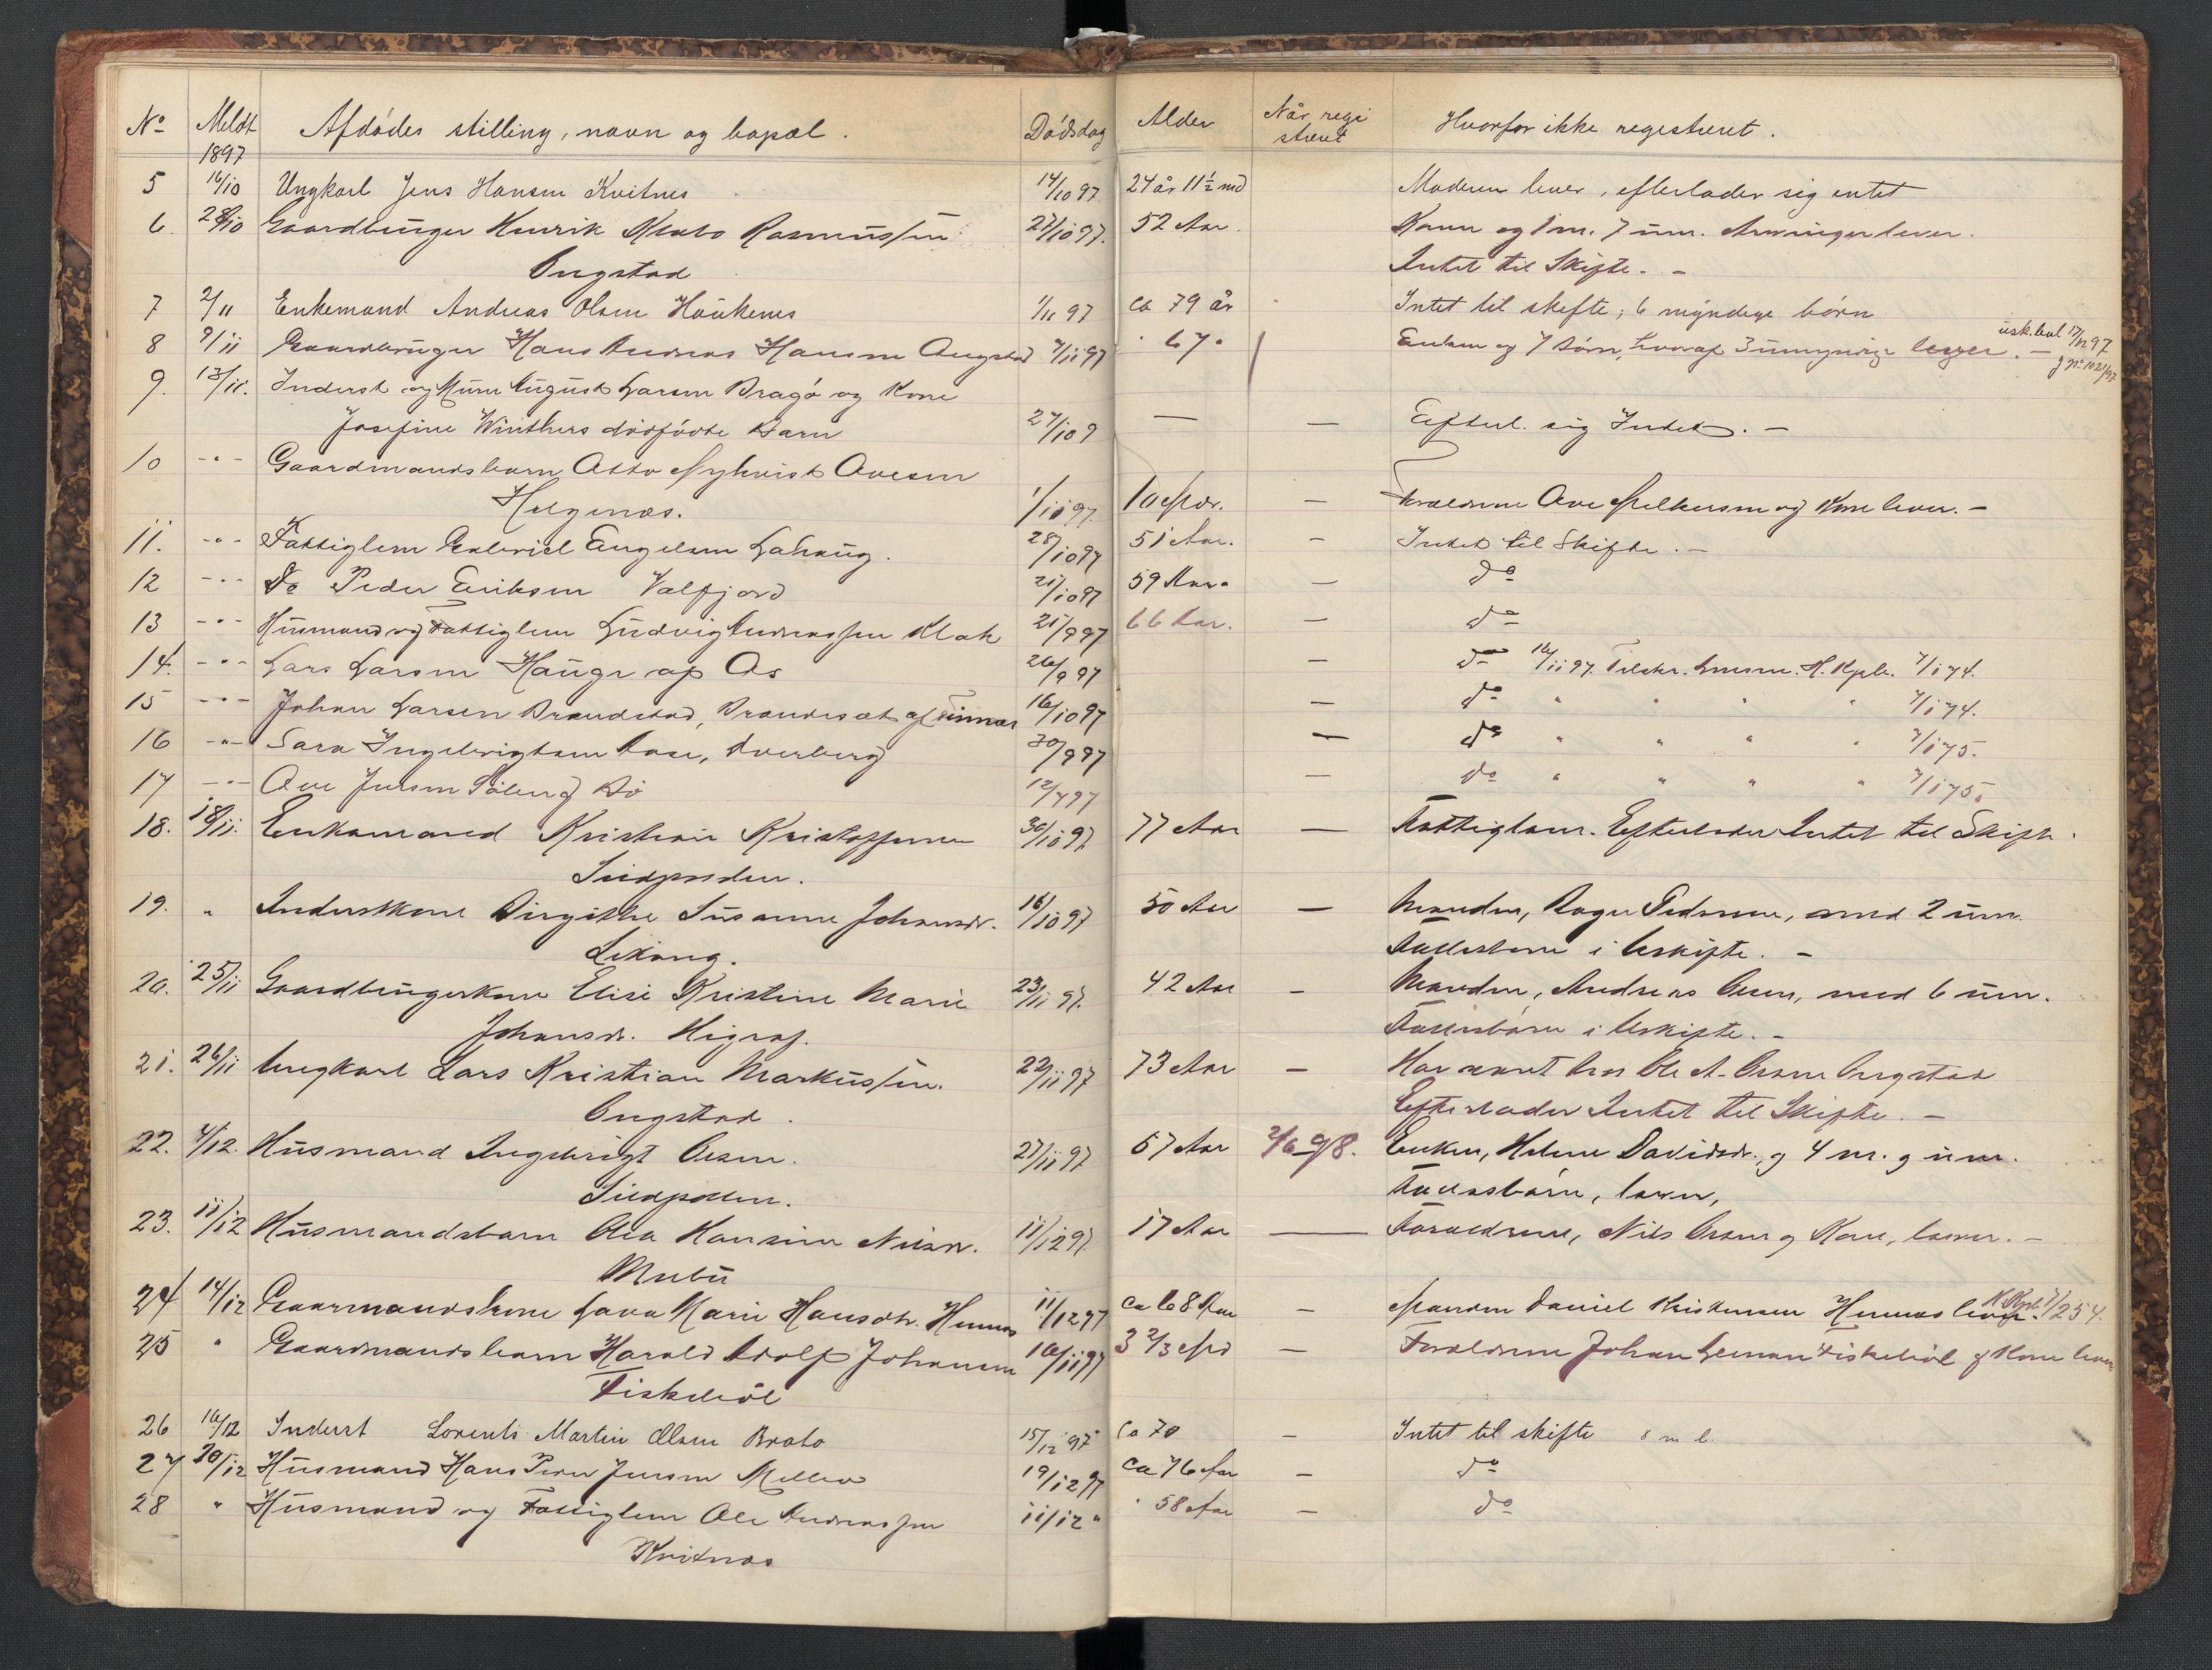 No Meldt Afdødes stilling, navn og bopæl. Dødsdag Alder Når regi Hvorfor ikke registreret.
1897 streret
5 16/10 Ungkarl Jens Hansen Kvitnes 14/10 97 24 år 11 1/2 md Moderen lever, efterlader sig intet
6. 28/10 Gaardbruger Henrik Rasmussen 27/10 97. 52 Aar. Konen og 1 m. 7 um. Arvinger lever.
Ongstad Intet til Skifte. -
7 2/11 Enkemand Andreas Olsen Haukenes 1/11 97 ca 79 år Intet til skifte; 6 myndige børn
8 9/11 Gaardbruger Hans Andreas Hansen Ongstad 7/11 97 " 67 " Enken og 7 børn, hvoraf 3 umyndige lever. - usk.bev 17/12 97
9. 13/11. Inderst og Murer August Larsen Dragø og Kone
Josefine Winthers dødfødte Barn 27/10 9 — — Efterl. sig Intet. -
10 -"- Gaardmandsbarn Otto Nykvist Ovesen
Helgenæs. 1/11 97. 10 Mdr. — Forældrene Ove Melkersen og Kone lever. -
11. -"- Fattiglem Gabriel Engelsen Lahaug. 28/10 97 51 Aar. — Intet til Skifte. -
12 -"- Do Peder Eriksen Valfjord 21/10 97 59 Aar. — do
13 -"- Husmand og Fattiglem Ludvig Andreassen Klak 21/9 97 66 Aar. — do
14. -"- Lars Larsen Hauge af Os 26/9 97 — do 16/11 97. Tilskr. Lensm. H. Kpb. 7/1 74.
15 -"- Johan Larsen Brændstad, Brandsæt af 16/10 97 — do " " " " 7/1 74.
16 -"- Sara Ingebrigtsen Aase, Averberg 30/9 97 — do " " " " 7/1 75.
17 -"- Ove Jensen Søberg Bø 12/7 97 — do " " " " 7/1 75.
18. 18/11. Enkemand Kristian Kristoffersen 30/10 97. 77 Aar — Fattiglem. Efterlader Intet til Skifte.
Sildpollen.
19. " Inderstkone Birgithe Susanne Johansdr. 16/10 97 50 Aar — Manden, Roger Pedersen, med 2 um.
Fællesbørn i Uskifte. -
20. 25/11 Gaardbrugerkone Elise Kristine Marie 23/11 97. 42 Aar - Manden, Andreas Olsen, med 6 um.
Johansdr. Higraf. Fællesbørn i Uskifte. -
21. 26/11 Ungkarl Lars Kristian Markussen. 22/11 97 73 Aar - Har været hos Ole A. Olsen Ongstad
Ongstad. Efterlader Intet til Skifte. -
22. 4/12. Husmand Ingebrigt Olsen. 27/11 97 67 Aar 2/6 98. Enken, Helene Davidsdr. og 4 m. og um.
Sildpollen. Fællesbørn, lever,
23. 11/12 Husmandsbarn Olea Hansine Nilsdr. 11/12 97. 17 Aar — Forældrene, Nils Olsen og Kone, lever. -
Melbu
24 14/12 Gaardmandskone Lava Marie Hansdtr. Hennes 11/12 97 ca 68 Aar - Manden Daniel Kristensen Hennes lever. H. Kpb. 7/254.
25 " Gaardmandsbarn Harald Adolf Johansen 16/11 97 3 2/3 Md - Forældrene Johan Fiskebøl og Kone lever
Fiskebøl
26 16/12 Inderst Lorents Martin Olsen Broto 15/12 97 ca 70 - Intet til skifte 8 m b.
27 20/12 Husmand Hans Peder Jensen Melbu 19/12 97 ca 76 Aar - do
28 " Husmand og Fattiglem Ole Andreassen 11/12 " " 58 Aar - do
Kvitnæs